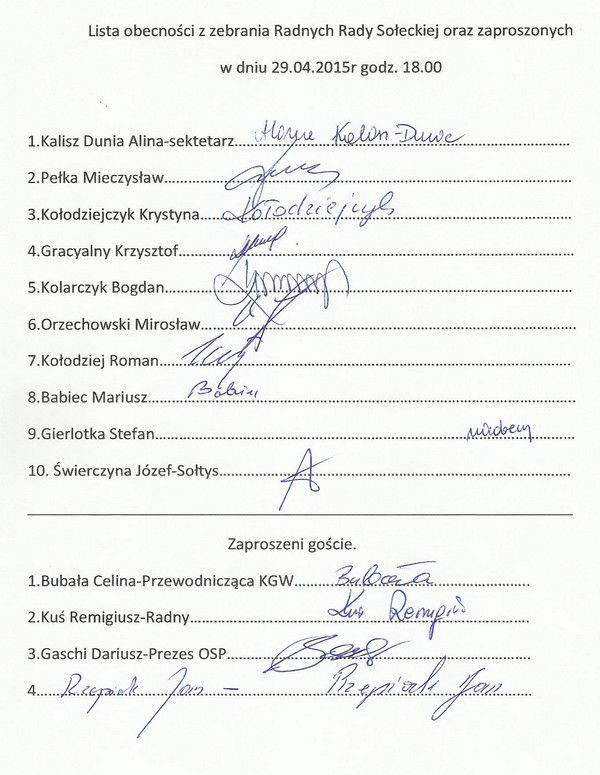 Lista obecności z zebrania Radnych Rady Sołeckiej oraz zaproszonych
w dniu 29.04.2015r godz. 18.00
1.Kalisz Dunia Alina-sektetarz
2.Pełka Mieczysław
3.Kołodziejczyk Krystyna Kołodziejczyk
4.Gracyalny Krzysztof
5.Kolarczyk Bogdan
6.Orzechowski Mirosław
7.Kołodziej Roman
8.Babiec Mariusz
9.Gierlotka Stefan
10. Świerczyna Józef-Sołtys
Zaproszeni goście.
1.Bubała Celina-Przewodnicząca KGW Bubała
2.Kuś Remigiusz-Radny Kuś
3.Gaschi Dariusz-Prezes OSP
4. Rzepiak Jan – Rzepiak Jan